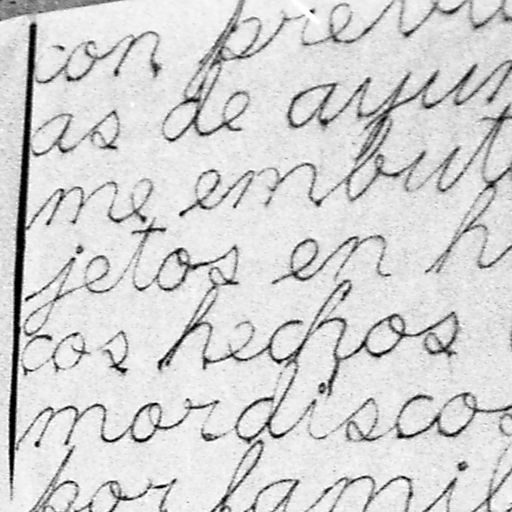 con previ
as de ayun
me embut
jetos en h
cos hechos
mordiscos
por famil